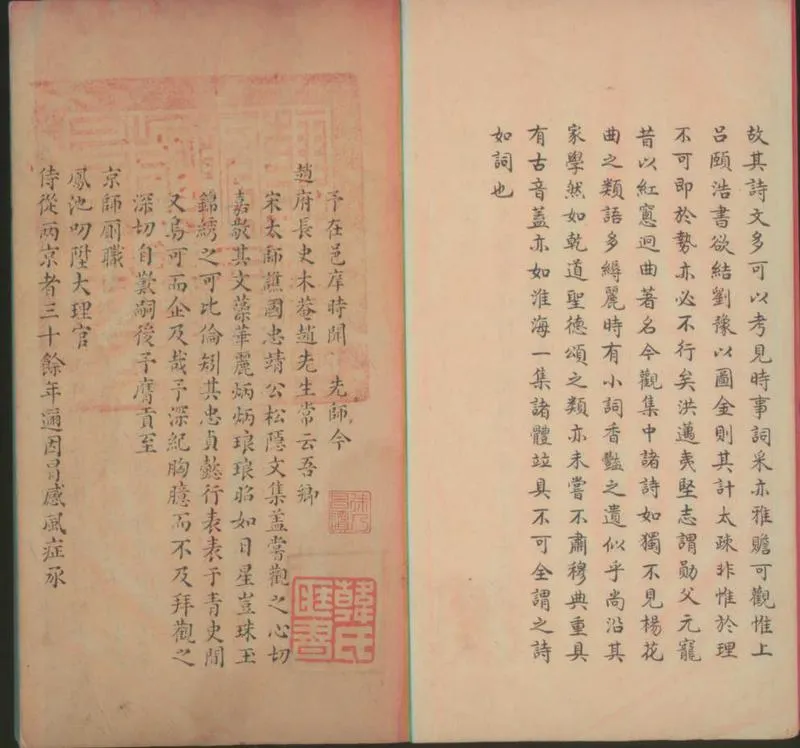 故其詩文多可以考見時事詞采亦雅贍可觀惟上
呂頤浩書欲結劉豫以圖金則其計太疎非惟於理
不可即於勢亦必不行矣洪邁夷堅志謂勛父元寵
昔以紅窻迥曲著名今觀集中諸詩如獨不見楊花
曲之類語多縟麗時有小詞香豔之遺似乎尚沿其
家學然如乾道聖德頌之類亦未嘗不肅穆典重具
有古音蓋亦如淮海一集諸體竝具不可全謂之詩
如詞也
予在邑庠時聞 先師今
趙府長史木菴趙先生常云吾鄉
宋太師譙國忠靖公松隱文集蓋嘗觀之心切
嘉敬其文藻華麗炳炳琅琅昭如日星豈珠玉
錦綉之可比倫矧其忠貞懿行表表于青史間
又烏可而企及哉予深紀胸臆而不及拜觀之
深切自歉嗣後予膺貢至
京師廁職
鳳池叨陞大理官
侍從兩京者三十餘年邇因冐感風症永
韓氏